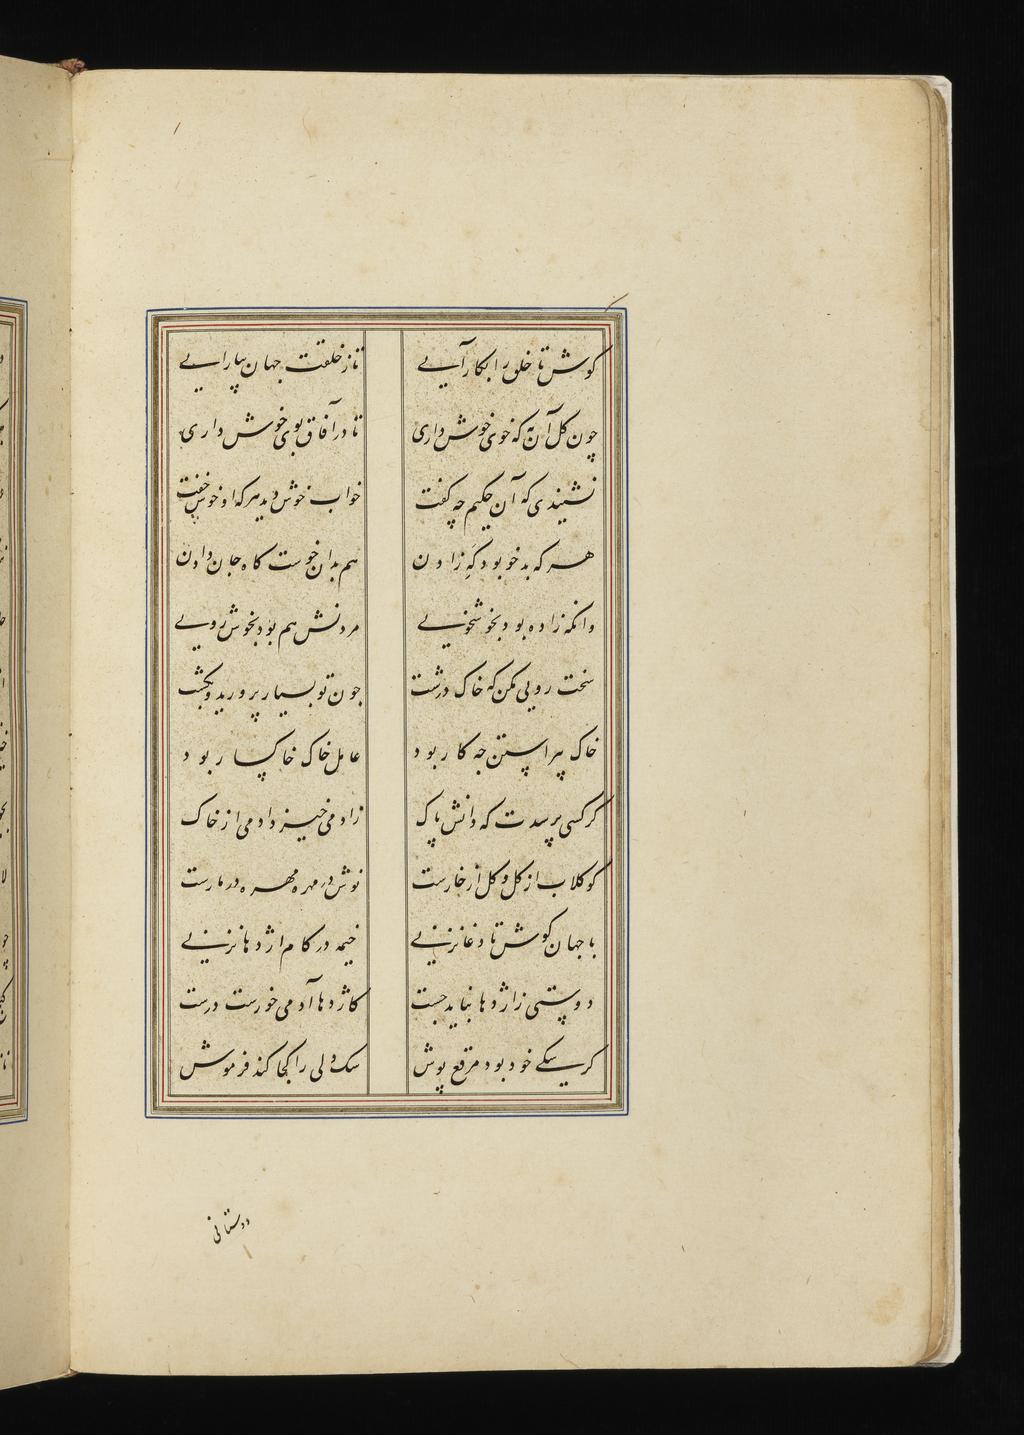 کوش تا خلق را بکار آیی
تا ز خلقت جهان بیارایی
چون کل آن به که خوی خوش داری
تا در آفاق بوی خوش داری
نشنیدی که آن حکیم چه کفت
خواب خوش دید هر که او خوش خفت
هر که بد خو بود که زادن
هم بدان خوست کاه جان دادن
وانکه زاده بود بخوشخویی
مردنش هم بود بخوش رویی
سخت رویی مکن که خاک درشت
چون تو بسیار پرورید و بکشت
خاک پیراستن چه کار بود
عامل خاک خاکسار بود
کر کسی پرسدت که دانش پاک
ز آدمی خیزد آدمی از خاک
کو کلاب از کل و کل از خارست
نوش در مهره مهره در مارست
با جهان کوش تا دغا نزنی
خیمه در کام اژدها نزنی
دوستی ز اژدها نباید جست
کاژدها آدمی خورست درست
کر سکی خود بود مرقع پوش
سک دلی را کجا کند فرموش
دوستانی